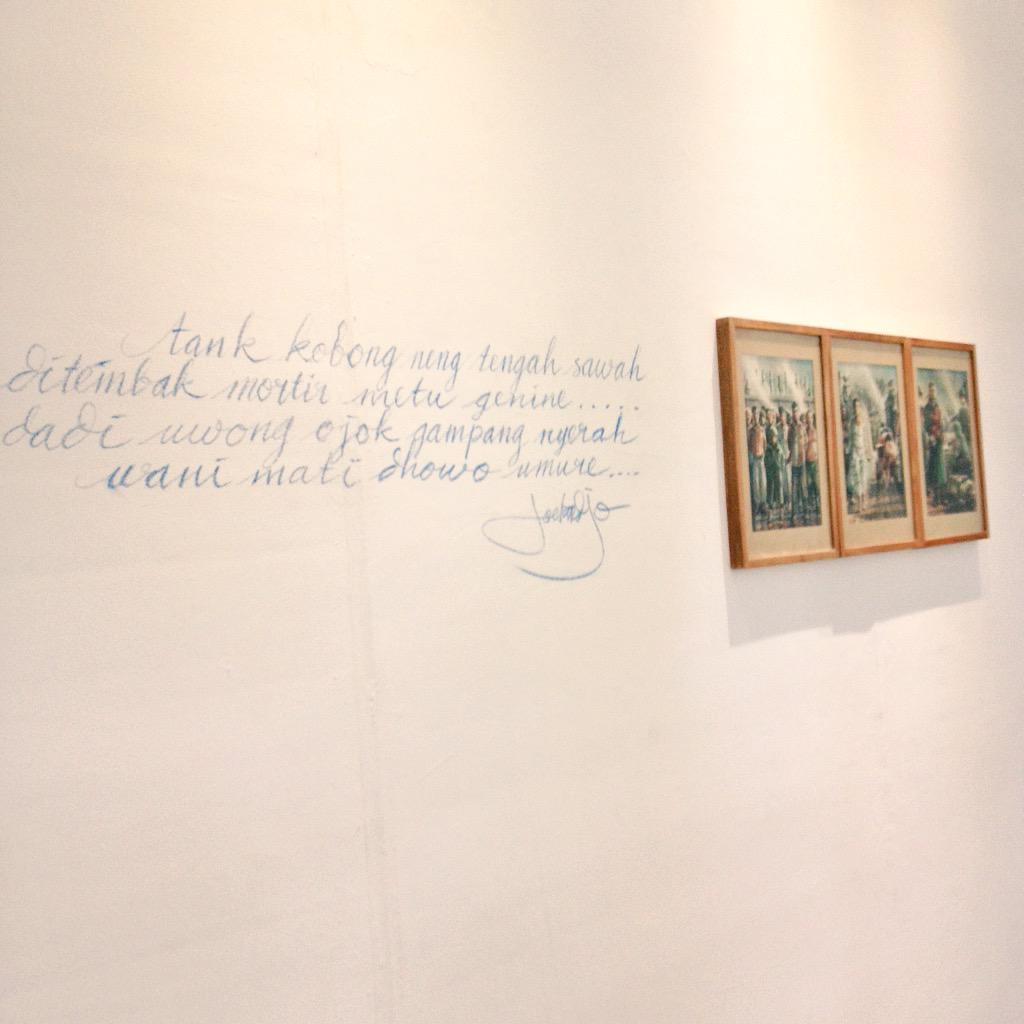 tank kobong neng tengah sawah
ditembak mortir metu genine.....
dadi uwong ojok gampang nyerah
wani mati dhowo umure....